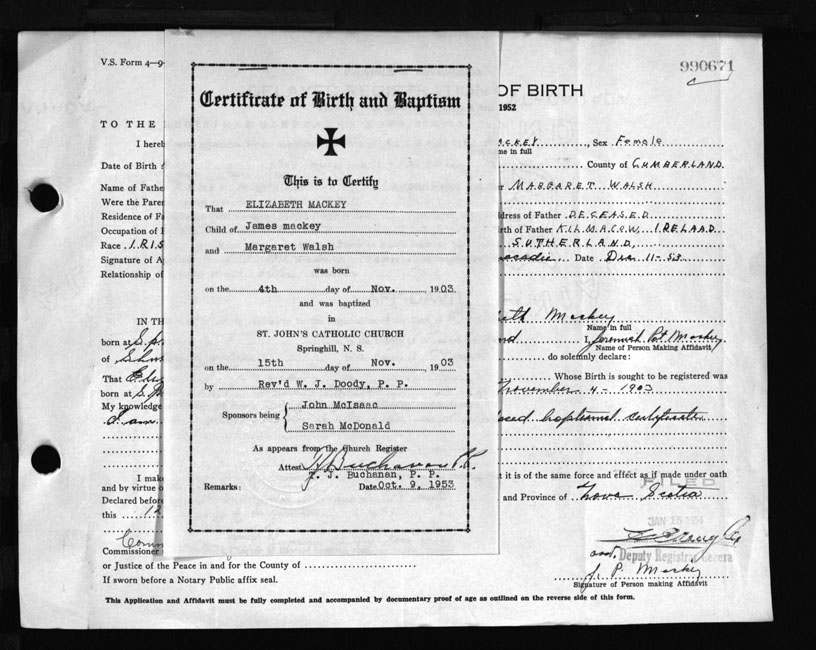 V.S. Form 4-9-
990671
OF BIRTH
1952
TO THE
I hereb
MACKEY, Sex Female
me in full
Date of Birth
County of CUMBERLAND
Name of Fathe
MARGARET WALSH
Were the Paren
Residence of Fa
ddress of Father DECEASED
Occupation of
rth of Father KILMACOW, IRELAAD
Race IRIS
SUTHERLAND,
Signature of A
Date Dec 11-53
Relationship of
Certificate of Birth and Baptism
This is to Certify
That ELIZABETH MACKEY
Child of James mackey
and Margaret Walsh
was born
on the 4th day of Nov. 1903
and was baptized
in
ST. JOHN'S CATHOLIC CHURCH
Springhill, N. S.
on the 15th day of Nov. 1903
by Rev'd W. J. Doody, P. P.
Sponsors being John McIsaac
Sarah McDonald
As appears from the Church Register
Attest Buchanan P.P.
J. Buchanan, P. P.
Remarks: Date Oct. 9, 1953
IN TH
beth Mackey
Name in full
born at Sp
nd I, Jeremiah Pat Mackey
Name of Person Making Affidavit
of
do solemnly declare:
That
Whose Birth is sought to be registered was
born at
November 4 - 1903
My knowledge
baptismal certificate
I am
I mak
t it is of the same force and effect as if made under oath
and by virtue o
FILED
Declared before
and Province of Nova Scotia
this 12
JAN 15 1954
Deputy Registrar General
Commissioner
or Justice of the Peace in and for the County of
J. P. Mackey
Signature of Person making Affidavit
If sworn before a Notary Public affix seal.
This Application and Affidavit must be fully completed and accompanied by documentary proof of age as outlined on the reverse side of this form.